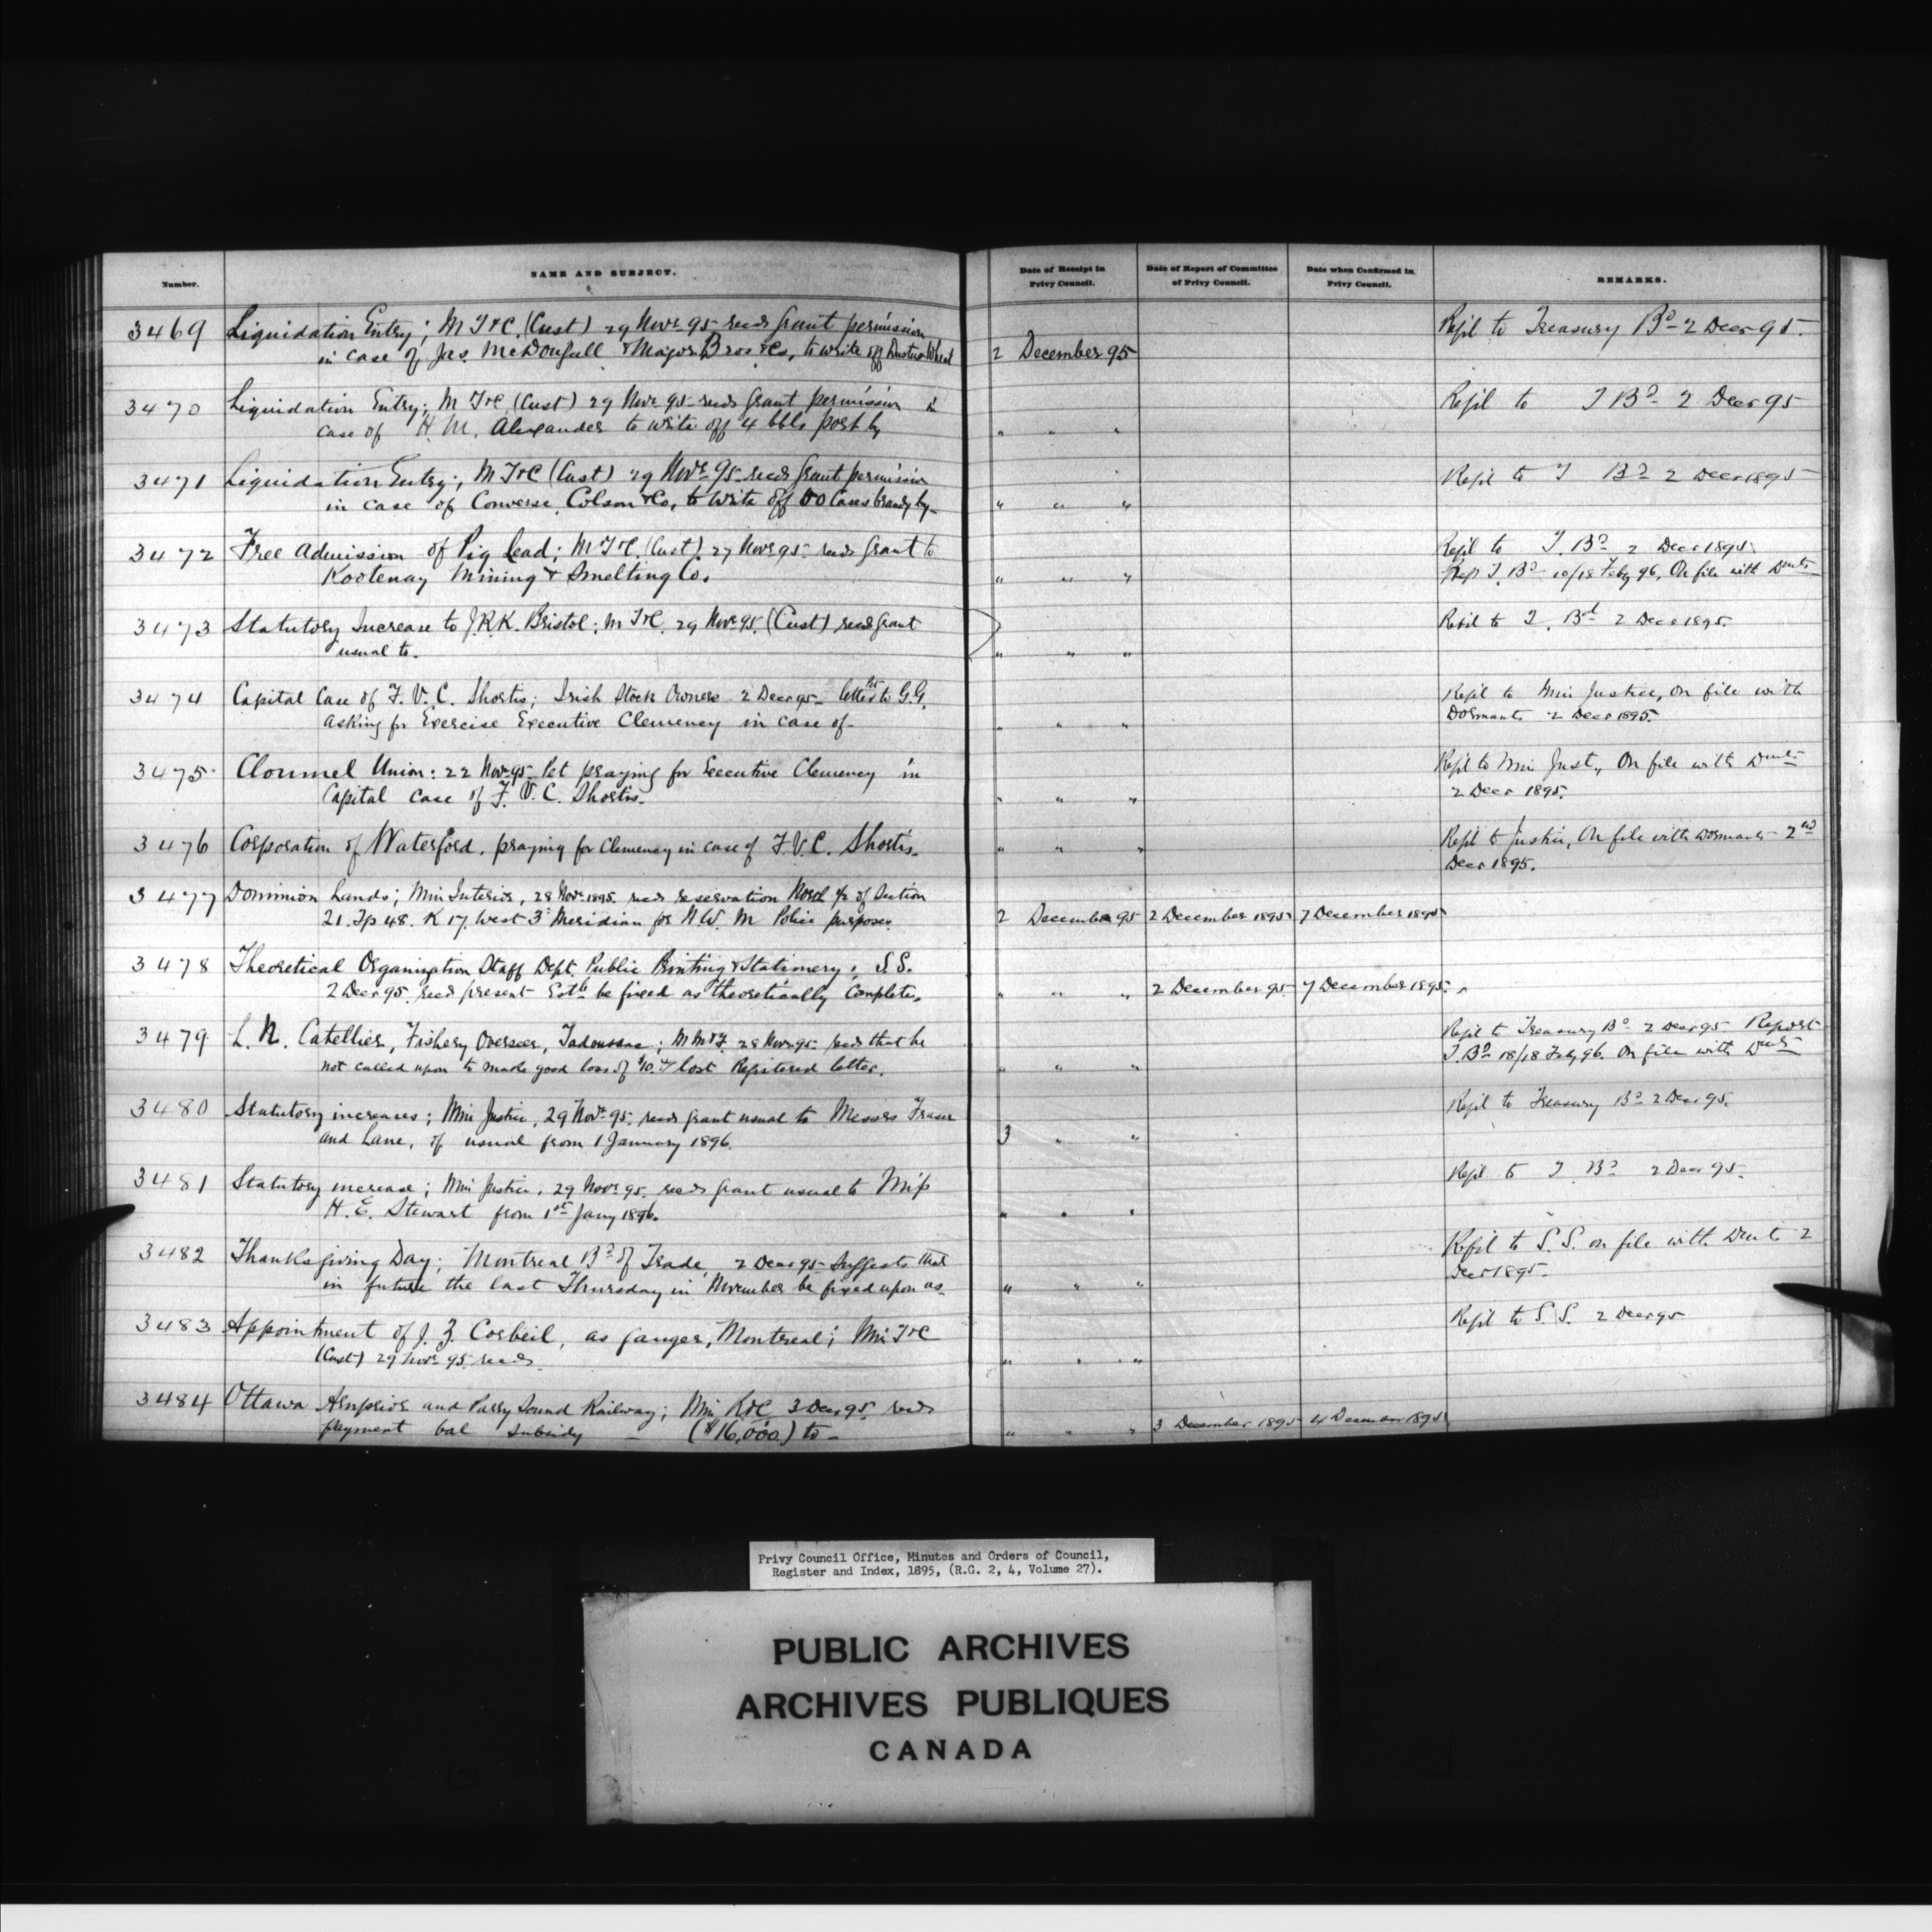 Number.
NAME AND SUBJECT.
Date of Receipt in
Privy Council.
Date of Report of Committee
of Privy Council.
Date when Confirmed in
Privy Council.
REMARKS.
3469 Liquidation Entry; M T&C. (Cust) 29 Novr 95 recds grant permission
in case of Jas. McDougall & Major Bros & Co, to write off wheat
2 December 95
Refd to Treasury Bd 2 Decr 95.
3470 Liquidation Entry; M T&C (Cust) 29 Novr 95 recds grant permission in
case of H. M. Alexander to write off 4 bbls pork by
" " "
Refd to T Bd 2 Decr 95
3471 Liquidation Entry; M T&C (Cust) 29 Novr 95 recds grant permission
in case of Converse, Colson & Co, to write off 00 Cases brandy by-
" " "
Refd to T Bd 2 Decr 1895
3472 Free Admission of Pig Lead; M T&C. (Cust) 27 Novr 95 recds Grant to
Kootenay Mining & Smelting Co.
" " "
Refd to T. Bd 2 Decr 1895
Rep T. Bd 10/18 Feby 96, On file with Dmts
3473 Statutory Increase to J.R.K. Bristol; M T&C. 29 Novr 95. (Cust) recds grant
usual to.
" " "
Refd to T. Bd 2 Decr 1895.
3474 Capital Case of F. V. C. Shortis; Irish Stock Owners 2 Decr 95 letter to G.G.
asking for Exercise Executive Clemency in case of-
" " "
Refd to Min Justice, On file with
Dormants 2 Decr 1895.
3475 Clonmel Union: 22 Novr 95 Pet praying for Executive Clemency in
Capital case of F. V. C. Shortis.
" " "
Refd to Min Just., On file with Dmts
2 Decr 1895.
3476 Corporation of Waterford, praying for Clemency in case of F.V.C. Shortis.
" " "
Refd to Justice, On file with Dormants 2nd
Decr 1895.
3477 Dominion Lands; Min Interior, 28 Novr 1895 recds reservation North ½ of Section
21. Tp 48. R 17. West 3d Meridian for N.W. M Police purposes.
2 December 95 2 December 1895 7 December 1895
3478 Theoretical Organization Staff Dept. Public Printing & Stationery; S.S.
2 Decr 95. recds present Estt be fixed as theoretically Complete.
" " " 2 December 95 7 December 1895.
3479 L. N. Catellier, Fishery Overseer, Tadoussac; M M&F. 28 Novr 95 recds that he
not called upon to make good loss of $10. lost Registered letter.
" " "
Refd to Treasury Bd 2 Decr 95 Report
T. Bd 18/18 Feby 96. On file with Dmts
3480 Statutory increases; Min Justice, 29 Novr 95. recds grant usual to Messrs Fraser
and Lane, of usual from 1 January 1896.
3 " "
Refd to Treasury Bd 2 Decr 95.
3481 Statutory increase; Min Justice, 29 Novr 95. recds grant usual to Miss
H. E. Stewart from 1st Jany 1896.
" " "
Refd to T Bd 2 Decr 95.
3482 Thanksgiving Day; Montreal Bd of Trade, 2 Decr 95 Suggests that
in future the last Thursday in November be fixed upon as-
" " "
Refd to S.S. on file with Dmts 2
Decr 1895.
3483 Appointment of J. Z. Corbeil, as gauger, Montreal; Min T&C
(Cust) 29 Novr 95. recds
" " "
Refd to S S. 2 Decr 95
3484 Ottawa Arnprior and Parry Sound Railway; Min R&C 3 Decr 95. recds
payment bal subsidy - ($16,000) to -
" " " 3 December 1895 4 December 1895
Privy Council Office, Minutes and Orders of Council,
Register and Index, 1895, (R.G. 2, 4, Volume 27).
PUBLIC ARCHIVES
ARCHIVES PUBLIQUES
CANADA